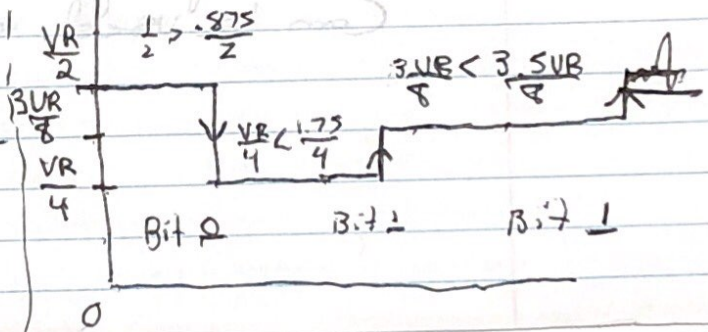 VR/2
1/2 > .875/2
3VR/8 < 3.5VR/8
3VR/8
VR/4 < 1.75/4
VR/4
Bit 0 Bit 1 Bit 1
0